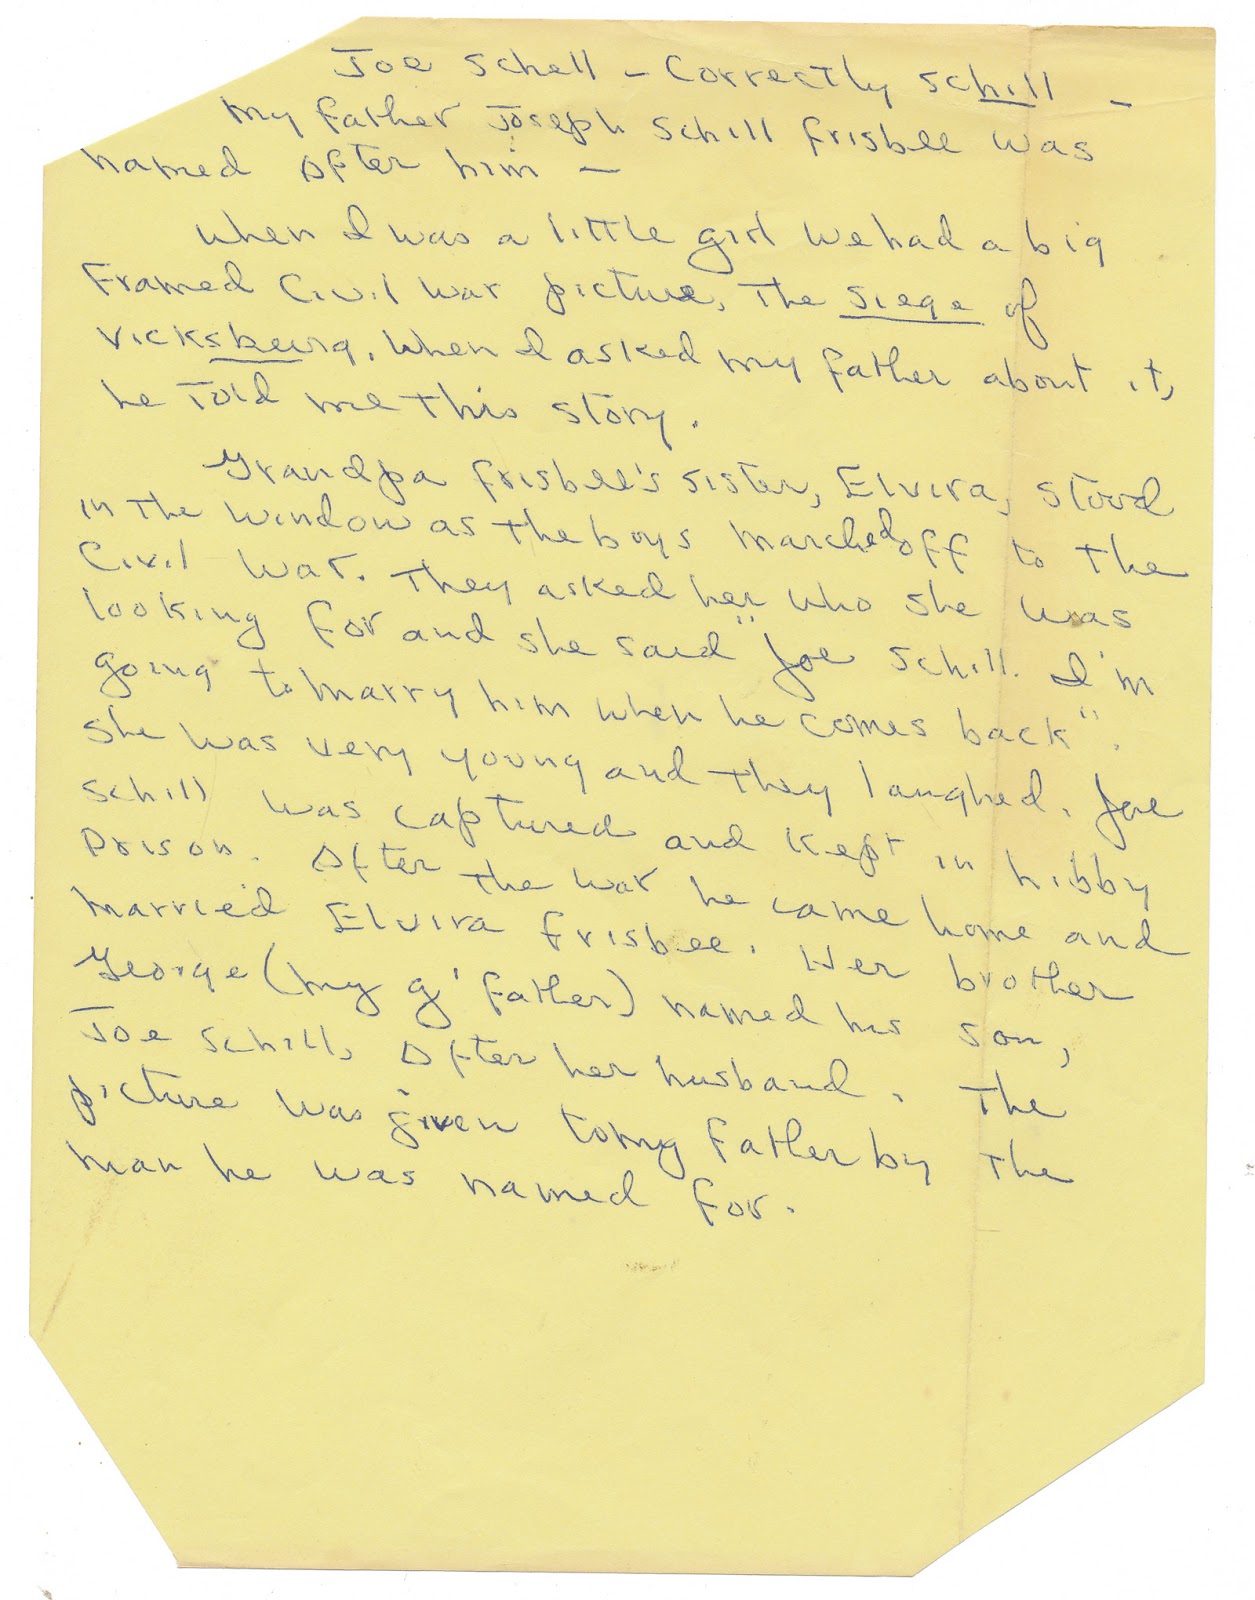 Joe Schell - Correctly Schill -
My father Joseph Schill Frisbee was
named after him -
When I was a little girl we had a big
Framed Civil War picture, The Siege of
Vicksburg. When I asked my father about it,
he told me this story.
Grandpa Frisbee's sister, Elvira, stood
in the window as the boys marched off to the
Civil War. They asked her who she was
looking for and she said "Joe Schill. I'm
going to marry him when he comes back".
She was very young and they laughed. Joe
Schill was captured and kept in Libby
Prison. After the war he came home and
married Elvira Frisbee. Her brother
George (my g'father) named his son,
Joe Schill, after her husband. The
picture was given to my father by the
man he was named for.